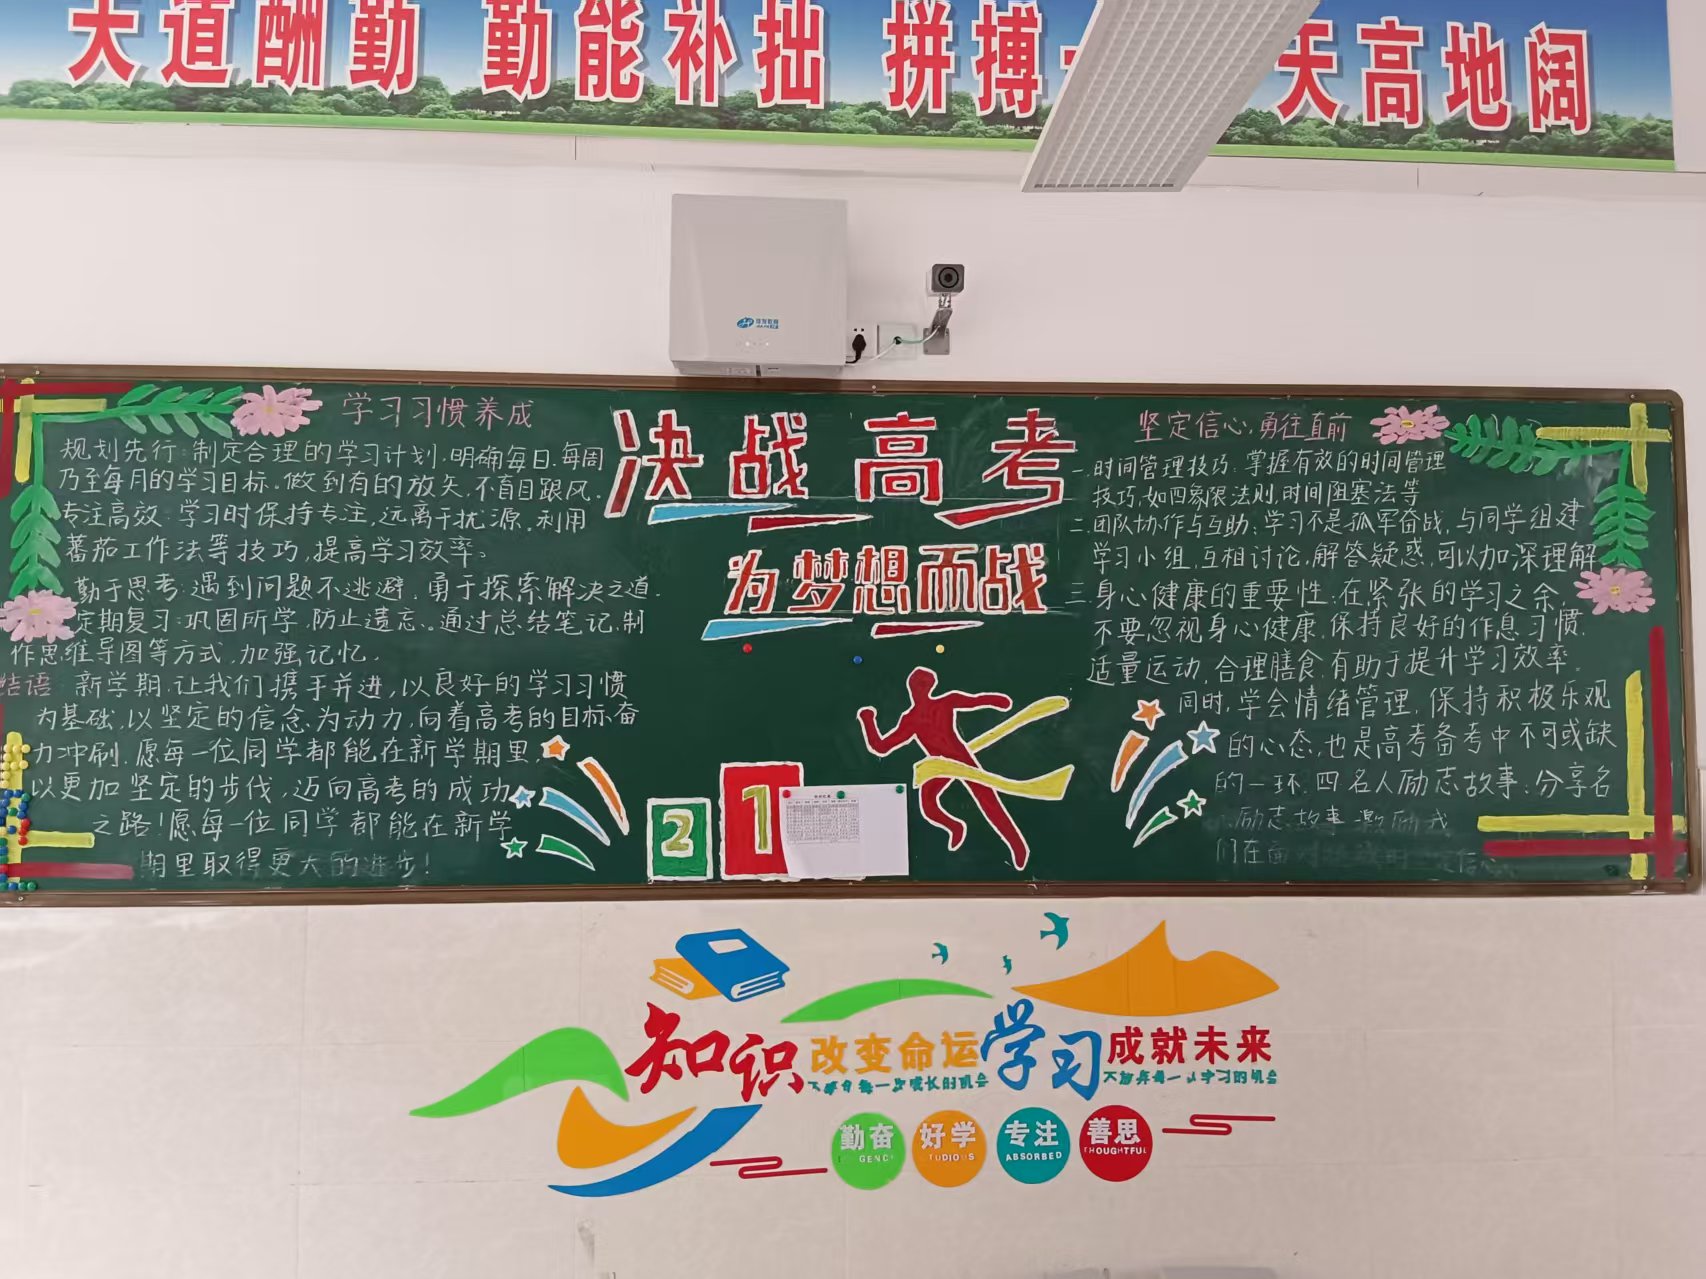 天道酬勤 勤能补拙 拼搏 天高地阔
学习习惯养成
规划先行:制定合理的学习计划,明确每日、每周
乃至每月的学习目标。做到有的放矢,不盲目跟风。
专注高效:学习时保持专注,远离干扰源,利用
蕃茄工作法等技巧,提高学习效率。
勤于思考:遇到问题不逃避,勇于探索解决之道.
定期复习:巩固所学,防止遗忘。通过总结笔记,制
作思维导图等方式,加强记忆.
结语 新学期,让我们携手并进,以良好的学习习惯
为基础,以坚定的信念为动力,向着高考的目标奋
力冲刷.愿每一位同学都能在新学期里
以更加坚定的步伐,迈向高考的成功
之路!愿每一位同学都能在新学
期里取得更大的进步!
决战高考
为梦想而战
2
1
坚定信心,勇往直前
一.时间管理技巧:掌握有效的时间管理
技巧,如四象限法则,时间阻塞法等
二.团队协作与互助:学习不是孤军奋战,与同学组建
学习小组,互相讨论,解答疑惑,可以加深理解
三.身心健康的重要性:在紧张的学习之余,
不要忽视身心健康,保持良好的作息习惯.
适量运动,合理膳食,有助于提升学习效率。
同时,学会情绪管理,保持积极乐观
的心态,也是高考备考中不可或缺
的一环.四名人励志故事:分享名
励志故事 激励我
们在面对
知识改变命运 学习成就未来
勤奋 好学 专注 善思
ABSORBED THOUGHTFUL